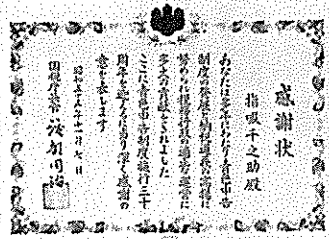 感謝状
指吸千之助殿
あなたは多年にわたり青色申告
制度の発展と納税道義の高揚に
努められ租税行政の適正な運営に
多大の貢献をされました
ここに青色申告制度施行三十
周年を迎えるに当り深く感謝の
意を表します
昭和五十五年十一月七日
国税庁長官